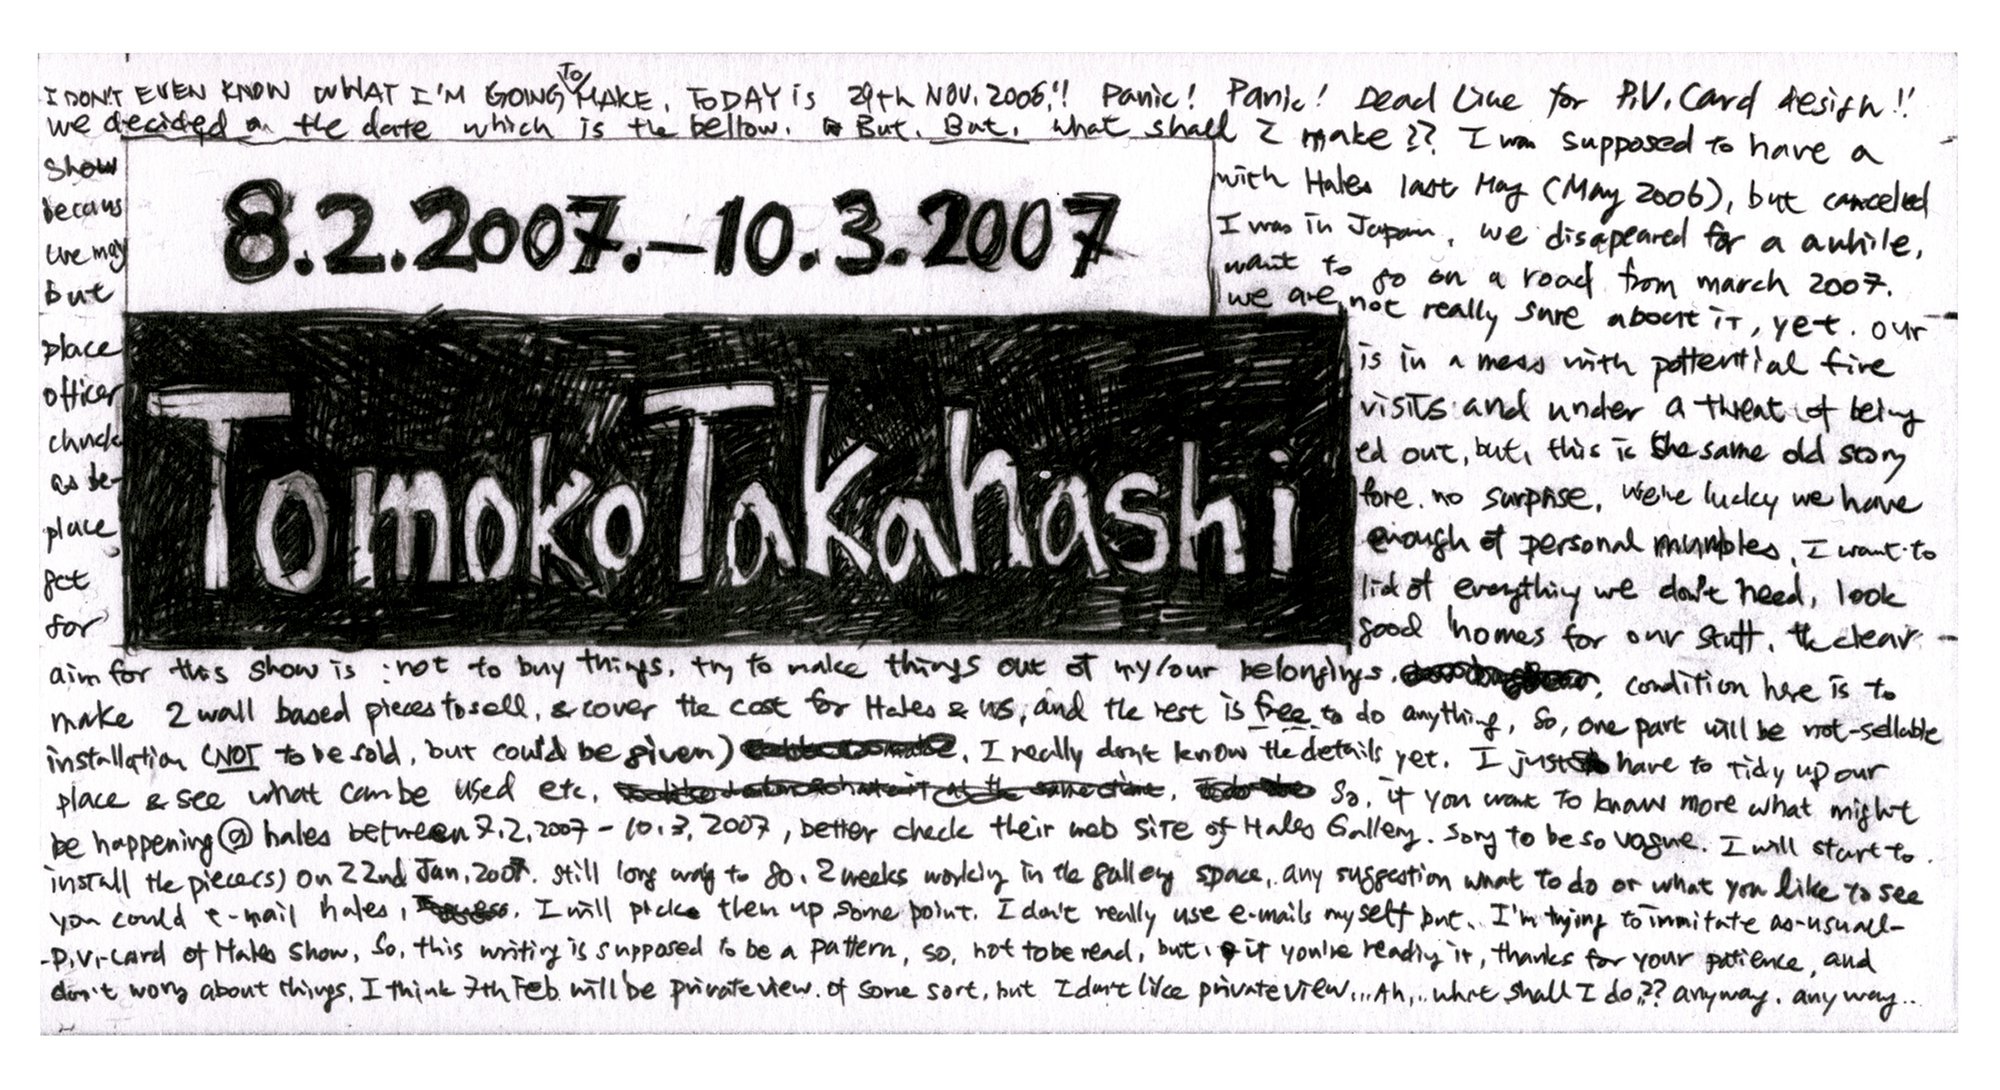 I DON'T EVEN KNOW WHAT I'M GOING TO MAKE. TODAY is 29th NOV. 2006!! Panic! Panic! Dead Line for P.V. Card design!!
we decided on the date which is the bellow. But. But. what shall I make?? I was supposed to have a
8.2.2007.–10.3.2007
Tomoko Takahashi
Show with Hales last May (May 2006), but canceled
becaus I was in Japan, we disapeared for a awhile,
we may want to go on a road from march 2007.
but we are not really sure about it, yet. our
place is in a mess with pottential fire
officer visits and under a threat of being
chuck ed out, but, this is the same old story
as be- fore. no surprise, We're lucky we have
place, enough of personal mumbles, I want to
get lid of everything we don't need, look
for good homes for our stuff. the clear
aim for this show is : not to buy things, try to make things out of my/our belongings. condition here is to
make 2 wall based pieces to sell, & cover the cost for Hales & us, and the rest is free to do anything, So, one part will be not-sellable
installation (NOT to be sold, but could be given) I really don't know the details yet. I just have to tidy up our
place & see what can be used etc. So, if you want to know more what might
be happening @ hales between 7.2.2007 – 10.3.2007, better check their web site of Hales Gallery. Sorry to be so vague. I will start to
install the piece(s) on 22nd Jan, 2007. still long way to go. 2 weeks working in the gallery space, any suggestion what to do or what you like to see
you could e-mail hales, I will pick them up some point. I don't really use e-mails myself but.. I'm trying to immitate as-usuall-
-P.V.-card of Hales Show, So, this writing is supposed to be a pattern, so, not to be read, but, if you're reading it, thanks for your patience, and
don't worry about things, I think 7th Feb will be private view. of some sort, but I don't like private view... Ah... what shall I do?? anyway. anyway...